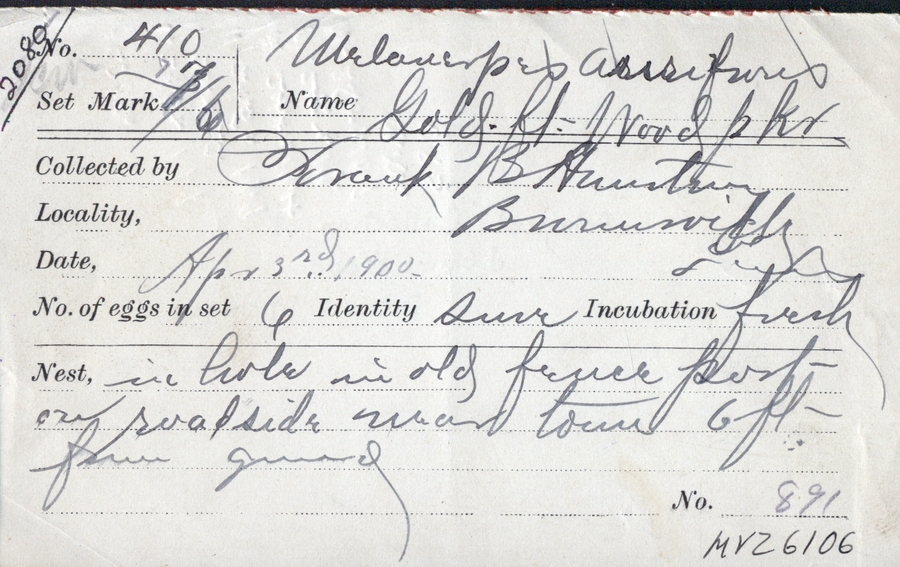 2089
No. 410
Set Mark 1/6 Name Melanerpes aurifrons
Gold. ft. Woodpkr
Collected by Frank B Armstrong
Locality, Brownsville
Texas
Date, Apr 3rd 1900
No. of eggs in set 6 Identity sure Incubation fresh
Nest, in hole in old fence post
on roadside near town 6 ft
from ground
No. 891
MVZ 6106